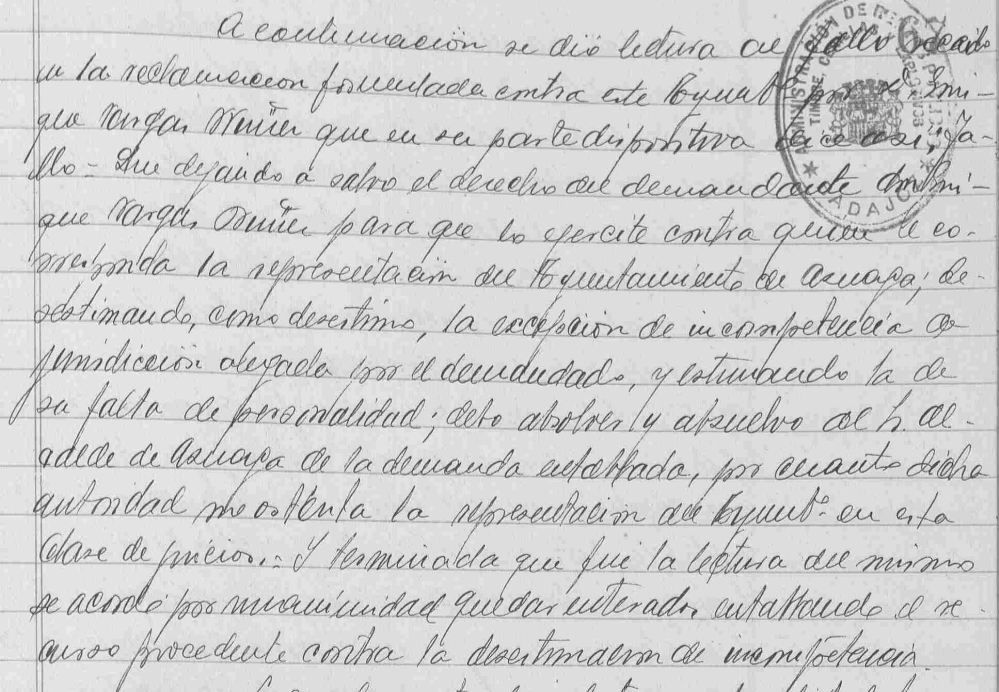 A continuación se dió lectura al fallo recaido
en la reclamacion formulada contra este Ayuntº por D. Enri-
que Vargas Muñer que en su parte dispositiva dice asi, Fa-
llo - Que dejando a salvo el derecho del demandante Enri-
que Vargas Muñer para que lo ejercite contra quien le co-
rresponda la representación del Ayuntamiento de Azuaga; de-
sestimando, como desestimo, la excepción de incompetencia de
jurisdicción alegada por el demandado, y estimando la de
su falta de personalidad; debo absolver y absuelvo al Sr. Al-
calde de Azuaga de la demanda entablada, por cuanto dicha
autoridad no ostenta la representacion del Ayuntº en esta
clase de juicios.- Y terminada que fué la lectura del mismo
se acordó por unanimidad quedar enterados entablando el re-
curso procedente contra la desestimacion de incompetencia.
ADMINISTRACIÓN DE
TIMBRE
BADAJOZ